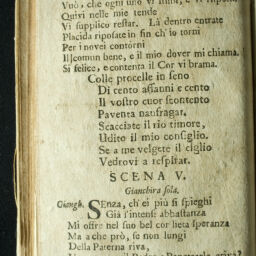 Vuò, che ogni uno vi
Quivi nelle mie tende
Vi supplico restar. Là dentro entrate
Placida riposate in fin ch'io torni
Per i novei contorni
Il comun bene, e il mio dover mi chiama.
Sì felice, e contenta il Cor vi brama.
Colle procelle in seno
Di cento affanni e cento
Il vostro cuor scontento
Paventa naufragar.
Scacciate il rio timore,
Udite il mio consiglio.
Se a me volgete il ciglio
Vedrovi a respirar.
SCENA V.
Gianghira sola.
Giangh. Senza, ch'ei più si spieghi
Già l'intesi abbastanza
Mi offre nel suo bel cor lieta speranza
Ma a che prò, se non lungi
Della Paterna riva,